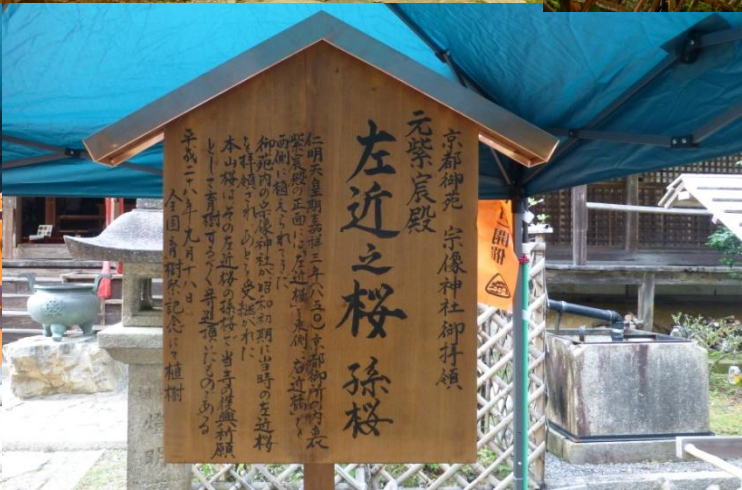 京都御苑 宗像神社御拝領
元紫宸殿
左近之桜 孫桜
仁明天皇期嘉祥三年(八五〇)京都御所の内裏
紫宸殿の正面に左近桜を東側、右近橘を
西側に植えられてきた
御苑内の宗像神社が昭和初期に当時の左近桜
を拝植され、あとを受継がれた
本山桜はその左近桜の孫桜で当寺の復興祈願
として育樹するべく寄進頂いたものである
平成二十八年九月十八日
全国育樹祭記念にて植樹